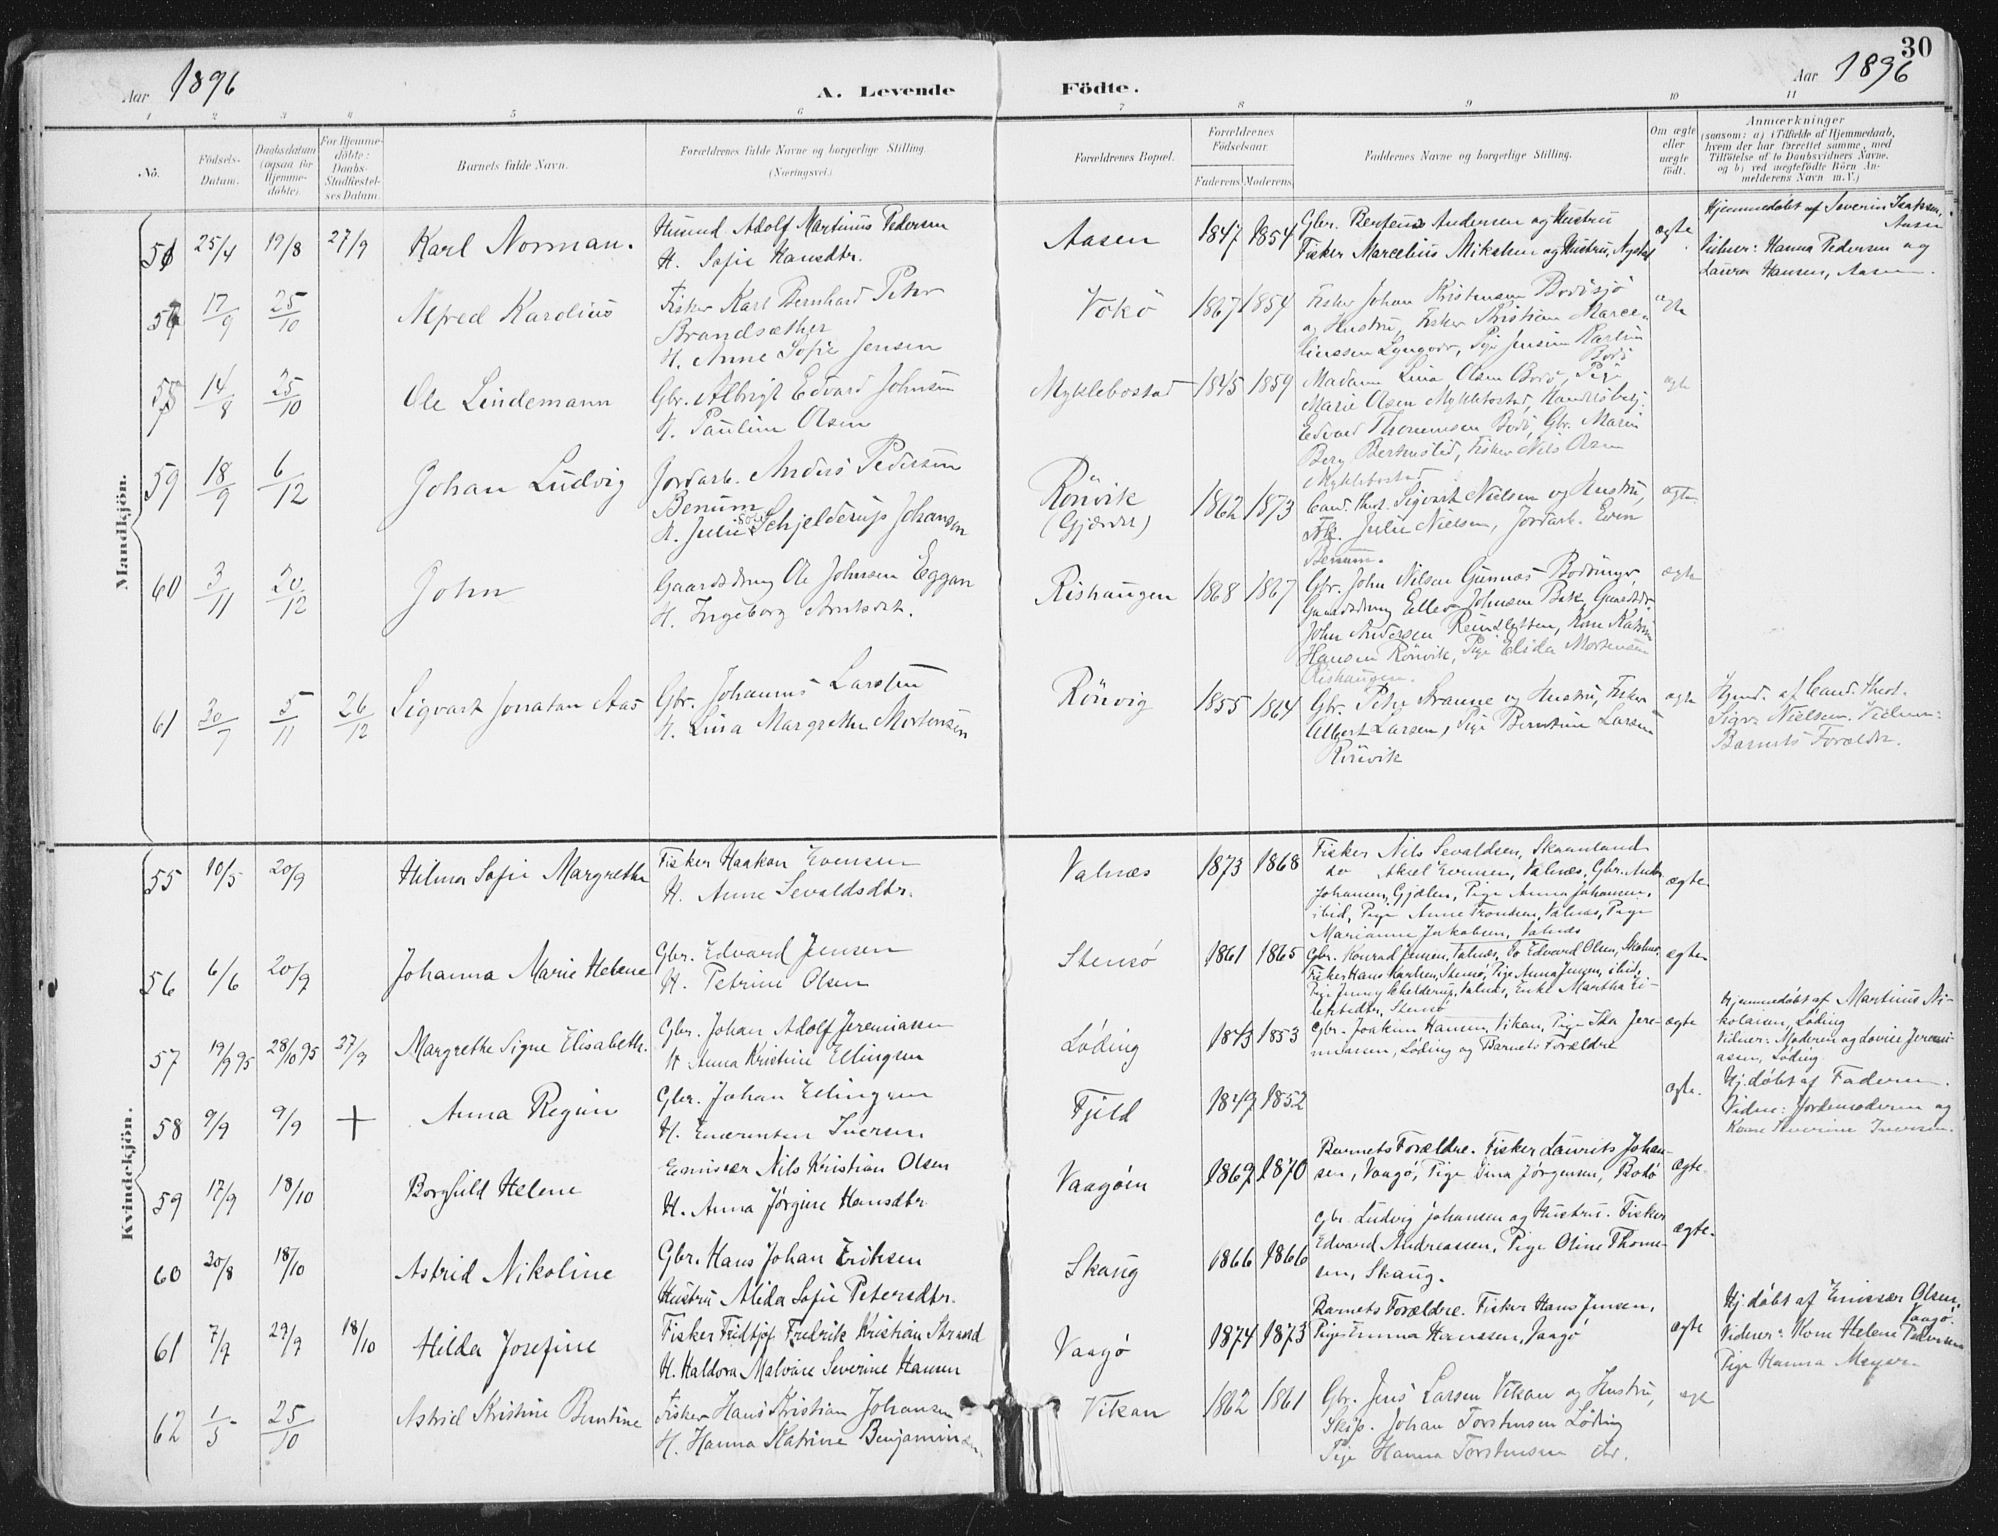 30
Aar 1896
A. Levende Födte.
Aar 1896
1 2 3 4 5 6 7 8 9 10 11
No.
Födsels-Datum.
Daabsdatum (ogsaa for Hjemmedöbte).
For Hjemmedöbte: Daabs-Stadfæstelses Datum.
Barnets fulde Navn.
Forældrenes fulde Navne og borgerlige Stilling. (Næringsvei.)
Forældrenes Bopæl.
Forældrenes Födselsaar.
Faderens. Moderens.
Faddernes Navne og borgerlige Stilling.
Om ægte eller uægte födt.
Anmærkninger
(saasom: a) i Tilfælde af Hjemmedaab, hvem der har forrettet samme, med Tilföielse af to Daabsvidners Navne, og b) ved uægtefödte Börn Anmelderens Navn m.V.)
Mandkjön.
25/4 19/8 27/9 Karl Norman.
Husmd Adolf Martinus Pedersen
H. Sofie Hansdtr.
Aasen 1847 1854
Gbr. Berteus Andersen og Hustru
Fisker Marcelius Mikalsen og Hustru, Nystad
ægte.
Hjemmedöbt af Severin Isaksen, Aasen
Vidner: Hanna Pedersen og
Laura Hansen, Aasen.
17/9 25/10 Alfred Karolius
Fisker Karl Bernhard Peter
Brandsæther
H. Anne Sofie Jensen
Vokö 1867 1854
Fisker Johan Kristensen Bodösjö
og Hustru, Fisker Kristian Marce-
liussen Lyngvær, Pige Jensine Karlsen
Bodö
ægte
14/8 25/10 Ole Lindemann
Gbr. Albrigt Edvard Johnsen
H. Pauline Olsen
Myklebostad 1845 1859
Madam Lina Olsen Bodö, Pige
Marie Olsen Myklebostad, Handelsbetj.
Edvard Thommesen Bodö, Gbr. Marin
Berg Bertnestid, Fisker Nils Olsen
Myklebostad
ægte
59 18/9 6/12 Johan Ludvig
Jordarb. Anders Pedersen
Benum
H. Julie Schjelderup Johansen
Rönvik
(Gjærdet)
1862 1873
Cand. theol. Sigvart Nielsen og Hustru,
Frk. Julie Nielsen, Jordarb. Even
Benum.
ægte
60 3/11 20/12 John
Gaardsdreng Ole Johnsen Eggan
H. Ingeborg Arntsdtr.
Rishaugen 1868 1867
Gbr. John Nilsen Gunnas Bodöngr,
Gaardsdreng Ellev Johnsen Bak, Gaardsdr.
John Andersen Reindsletten, Kone Katrine
Hansen Rönvik, Pige Elida Mortensen
Rishaugen.
ægte
61 30/7 5/11 26/12 Sigvart Jonatan Aas
Gbr. Johannes Larsen
H. Lina Margrethe Mortensen
Rönvig 1855 1864
Gbr. Peter Stranne og Hustru, Fisker
Albert Larsen, Pige Berntine Larsen
Rönvik
ægte
Hjmd. af Cand. theol.
Sigv. Nielsen. Vidner:
Barnets Forældr.
Kvindekjön.
55 10/5 20/9 Hilma Sofie Margrethe
Fisker Haakon Evensen
H. Anne Sevaldsdtr.
Valnæs 1873 1868
Fisker Nils Sevaldsen, Skaanland
do Aksel Evensen, Valnæs, Gbr. Anders
Johansen, Gjælen, Pige Anna Johansen,
ibid, Pige Anne Trondsen, Valnæs, Pige
Marianne Jakobsen, Valnæs
ægte
56 6/6 20/9 Johanna Marie Helene
Gbr. Edvard Jensen
H. Petrine Olsen
Stensö 1861 1865
Gbr. Konrad Jensen, Valnæs, do Edvard Olsen,
Fisker Hans Karlsen, Stensö, Pige Anna Jensen, ibid,
Pige Jenny Schelderup, Valnæs, Enke Martha Ei-
lertsdtr, Stensö
ægte
57 19/9 95 28/10 95 27/9 Margrethe Signe Elisabeth.
Gbr. Johan Adolf Jeremiassen
H Anna Kristine Ellingsen
Løding 1843 1853
Gbr. Joakim Hansen, Vikan, Pige Ida Jere-
miasen, Løding og Barnets Forældre
ægte
Hjemmedøbt af Martinus Ni-
kolaisen, Løding
Vidner: Moderen og Lovise Jeremi-
assen, Løding
58 9/9 9/9 + Anna Regine
Gbr. Johan Ellingsen
H. Iversen.
Fjeld 1849 1852
ægte.
Hj.døbt af Faderen.
Vidne: Jordemoderen og
Kone Severine Iversen.
59 17/9 18/10 Borghild Helene
Emisær Nils Kristian Olsen
H. Anna Jørgine Hansdtr
Vaagöen 1869 1870
Barnets Forældre. Fisker Laurits Johan-
sen, Vaagø, Pige Dina Jørgensen, Bodø
ægte.
60 30/8 18/10 Astrid Nikoline
Gbr. Hans Johan Eriksen
Hustru Alida Sofie Petersdtr.
Skaug 1866 1866
Gbr. Ludvig Johansen og Hustru. Fisker
Edvard Andreassen, Pige Oline Thome-
sen, Skaug.
ægte.
61 7/7 29/9 18/10 Hilda Josefine
Fisker Fridtjof Fredrik Kristian Strand
H. Haldora Malvine Severine Hansen
Vaagø 1874 1873
Barnets Forældre. Fisker Hans Jensen,
Pige Emma Hanssen, Vaagø
ægte
Hj.døbt af Emissær Olsen, Vaagø.
Vidner: Kone Helene Pedersen
Pige Hanna Meyer
62 1/5 25/10 Astrid Kristine Berntine
Fisker Hans Kristian Johansen
H. Hanna Katrine Benjaminsen
Vikan 1862 1861
Gbr. Jens Larsen Vikan og Hustru,
Skip. Johan Torstensen Løding
Pige Hanna Torstensen ibd.
ægte